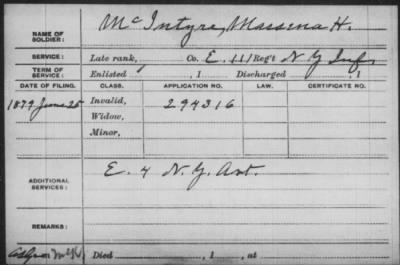 NAME OF SOLDIER: McIntyre, Massena H.
SERVICE: Late rank, Co. E. 111 Reg't N Y Inf.
TERM OF SERVICE: Enlisted , 1 Discharged , 1
DATE OF FILING. CLASS. APPLICATION NO. LAW. CERTIFICATE NO.
1879 June 25 Invalid, 294316
Widow,
Minor,
ADDITIONAL SERVICES: E. 4 N. Y. Art.
REMARKS:
Died , 1 , at